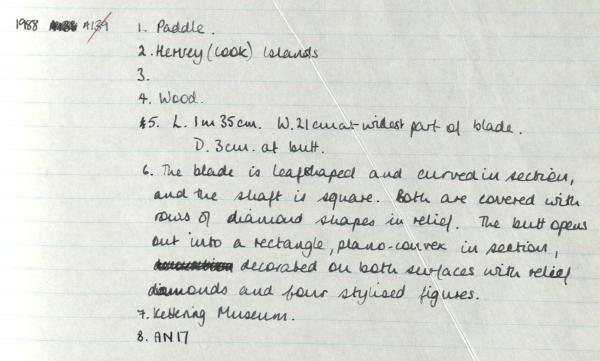 1988 A139 1. Paddle.
2. Hervey (Cook) Islands
3.
4. Wood.
5. L. 1m 35cm. W. 21cm at widest part of blade.
D. 3cm. at butt.
6. The blade is leafshaped and curved in section,
and the shaft is square. Both are covered with
rows of diamond shapes in relief. The butt opens
out into a rectangle, plano-convex in section,
decorated on both surfaces with relief
diamonds and four stylised figures.
7. Kettering Museum.
8. AN17